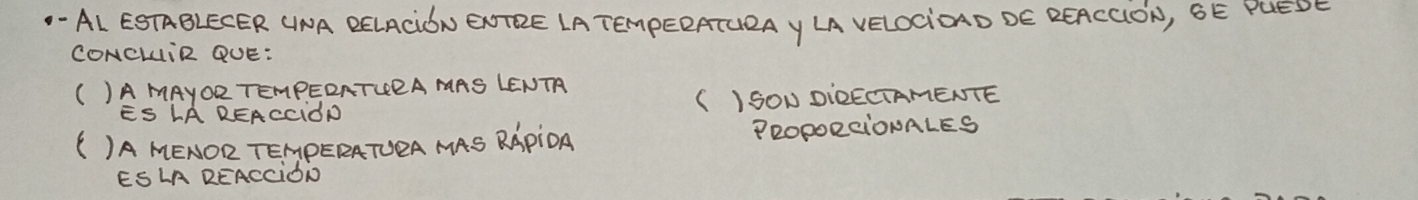 •- AL ESTABLECER UNA RELACIÓN ENTRE LA TEMPERATURA Y LA VELOCIDAD DE REACCIÓN, SE PUEDE
CONCLUIR QUE:
( ) A MAYOR TEMPERATURA MAS LENTA
ES LA REACCIÓN
( ) A MENOR TEMPERATURA MAS RÁPIDA
ES LA REACCIÓN
( ) SON DIRECTAMENTE
PROPORCIONALES